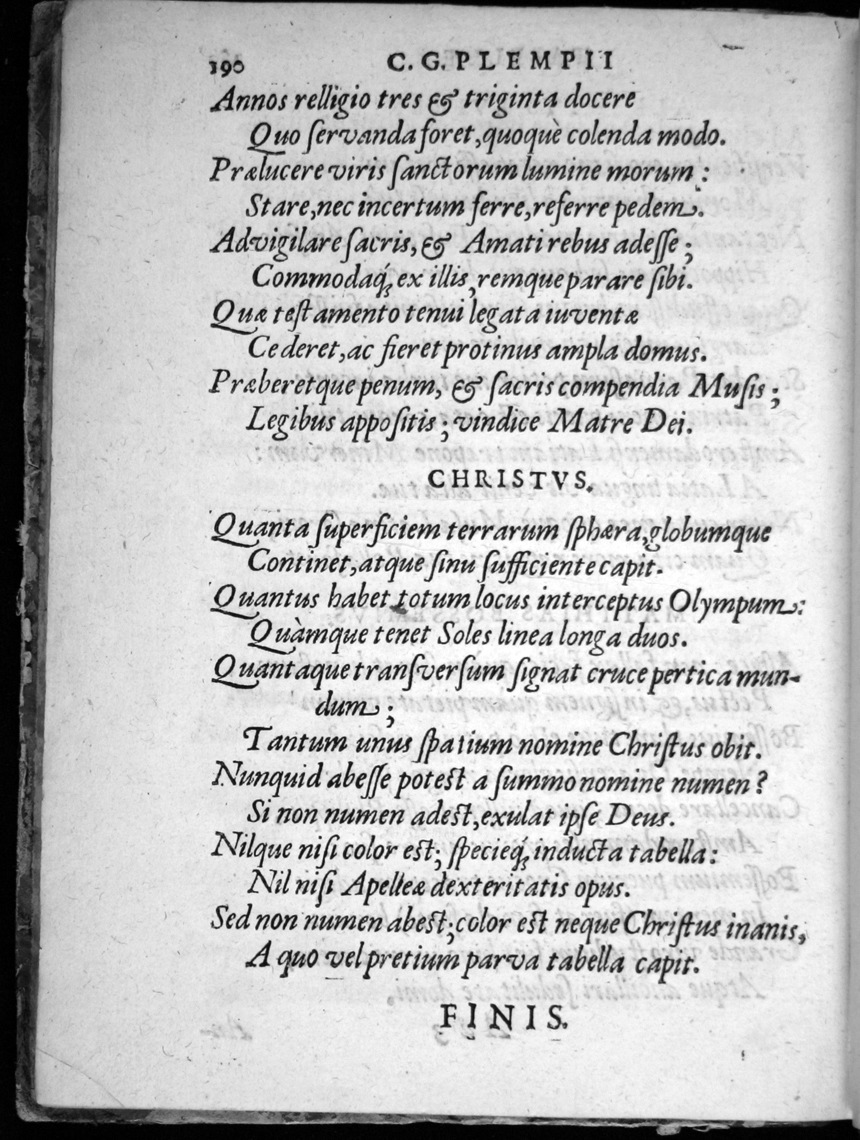 190 C. G. PLEMPII
Annos relligio tres & triginta docere
Quo ſervanda foret, quoquè colenda modo.
Prælucere viris ſanctorum lumine morum :
Stare, nec incertum ferre, referre pedem.
Advigilare ſacris, & Amati rebus adeſſe ;
Commodaq́; ex illis, remque parare ſibi.
Quæ teſtamento tenui legata iuventæ
Cederet, ac fieret protinus ampla domus.
Præberetque penum, & ſacris compendia Muſis ;
Legibus appoſitis ; vindice Matre Dei.
CHRISTVS.
Quanta ſuperficiem terrarum ſphæra, globumque
Continet, atque ſinu ſufficiente capit.
Quantus habet totum locus interceptus Olympum :
Quàmque tenet Soles linea longa duos.
Quantaque tranſverſum ſignat cruce pertica mun-
dum ;
Tantum unus ſpatium nomine Chriſtus obit.
Nunquid abeſſe poteſt a ſummo nomine numen ?
Si non numen adeſt, exulat ipſe Deus.
Nilque niſi color eſt ; ſpecieq́; inducta tabella :
Nil niſi Apelleæ dexteritatis opus.
Sed non numen abeſt ; color eſt neque Chriſtus inanis,
A quo vel pretium parva tabella capit.
FINIS.